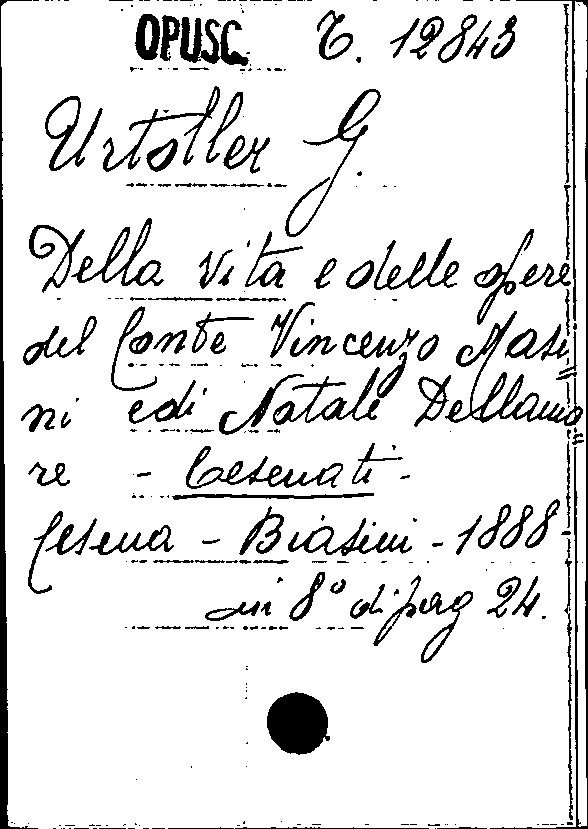 OPUSC. T. 12843
Urtoller G.
Della vita e delle opere
del Conte Vincenzo Masi=
ni e di Natale Dellamo=
re - Cesenati -
Cesena - Biasini - 1888 -
in 8° di pag 24.